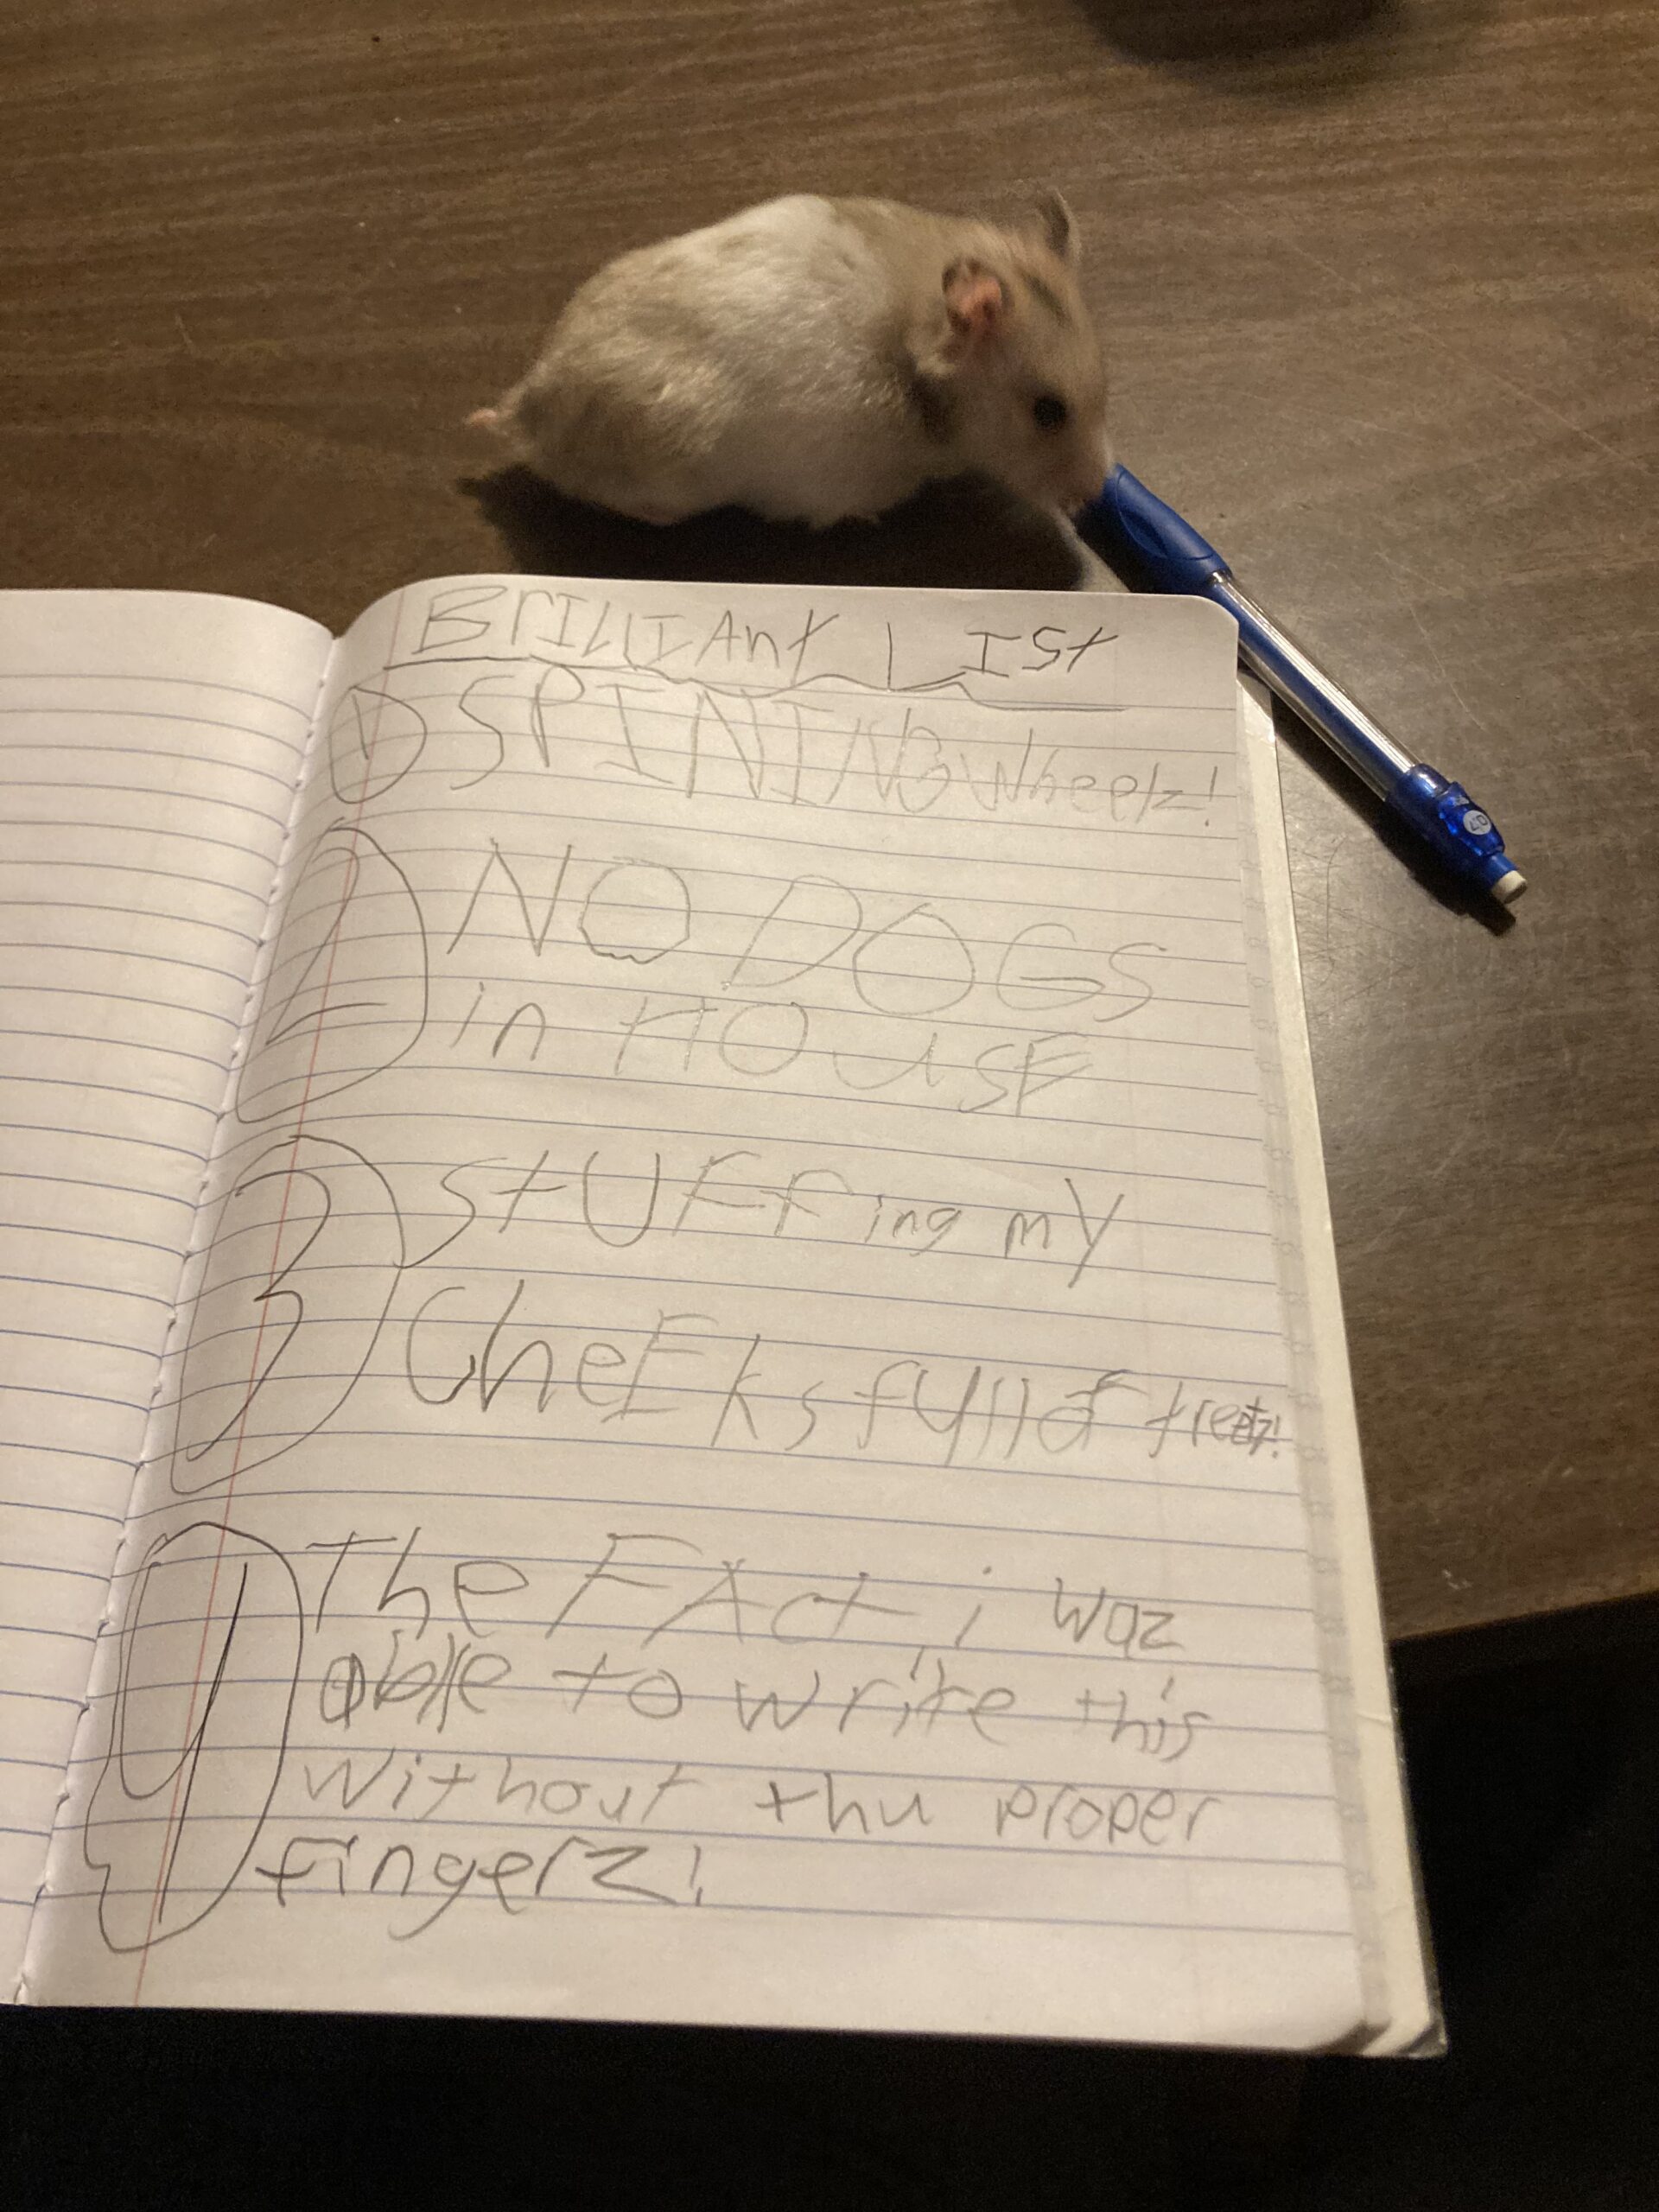 BrILLIAnt LISt
1 SPININGwheelz!
2 NO DOGS
in HOUSE
3 StUFFing my
CheEks full of treatz!
4 The FAct, i waz
able to write this
without thu proper
fingerz!
0.7